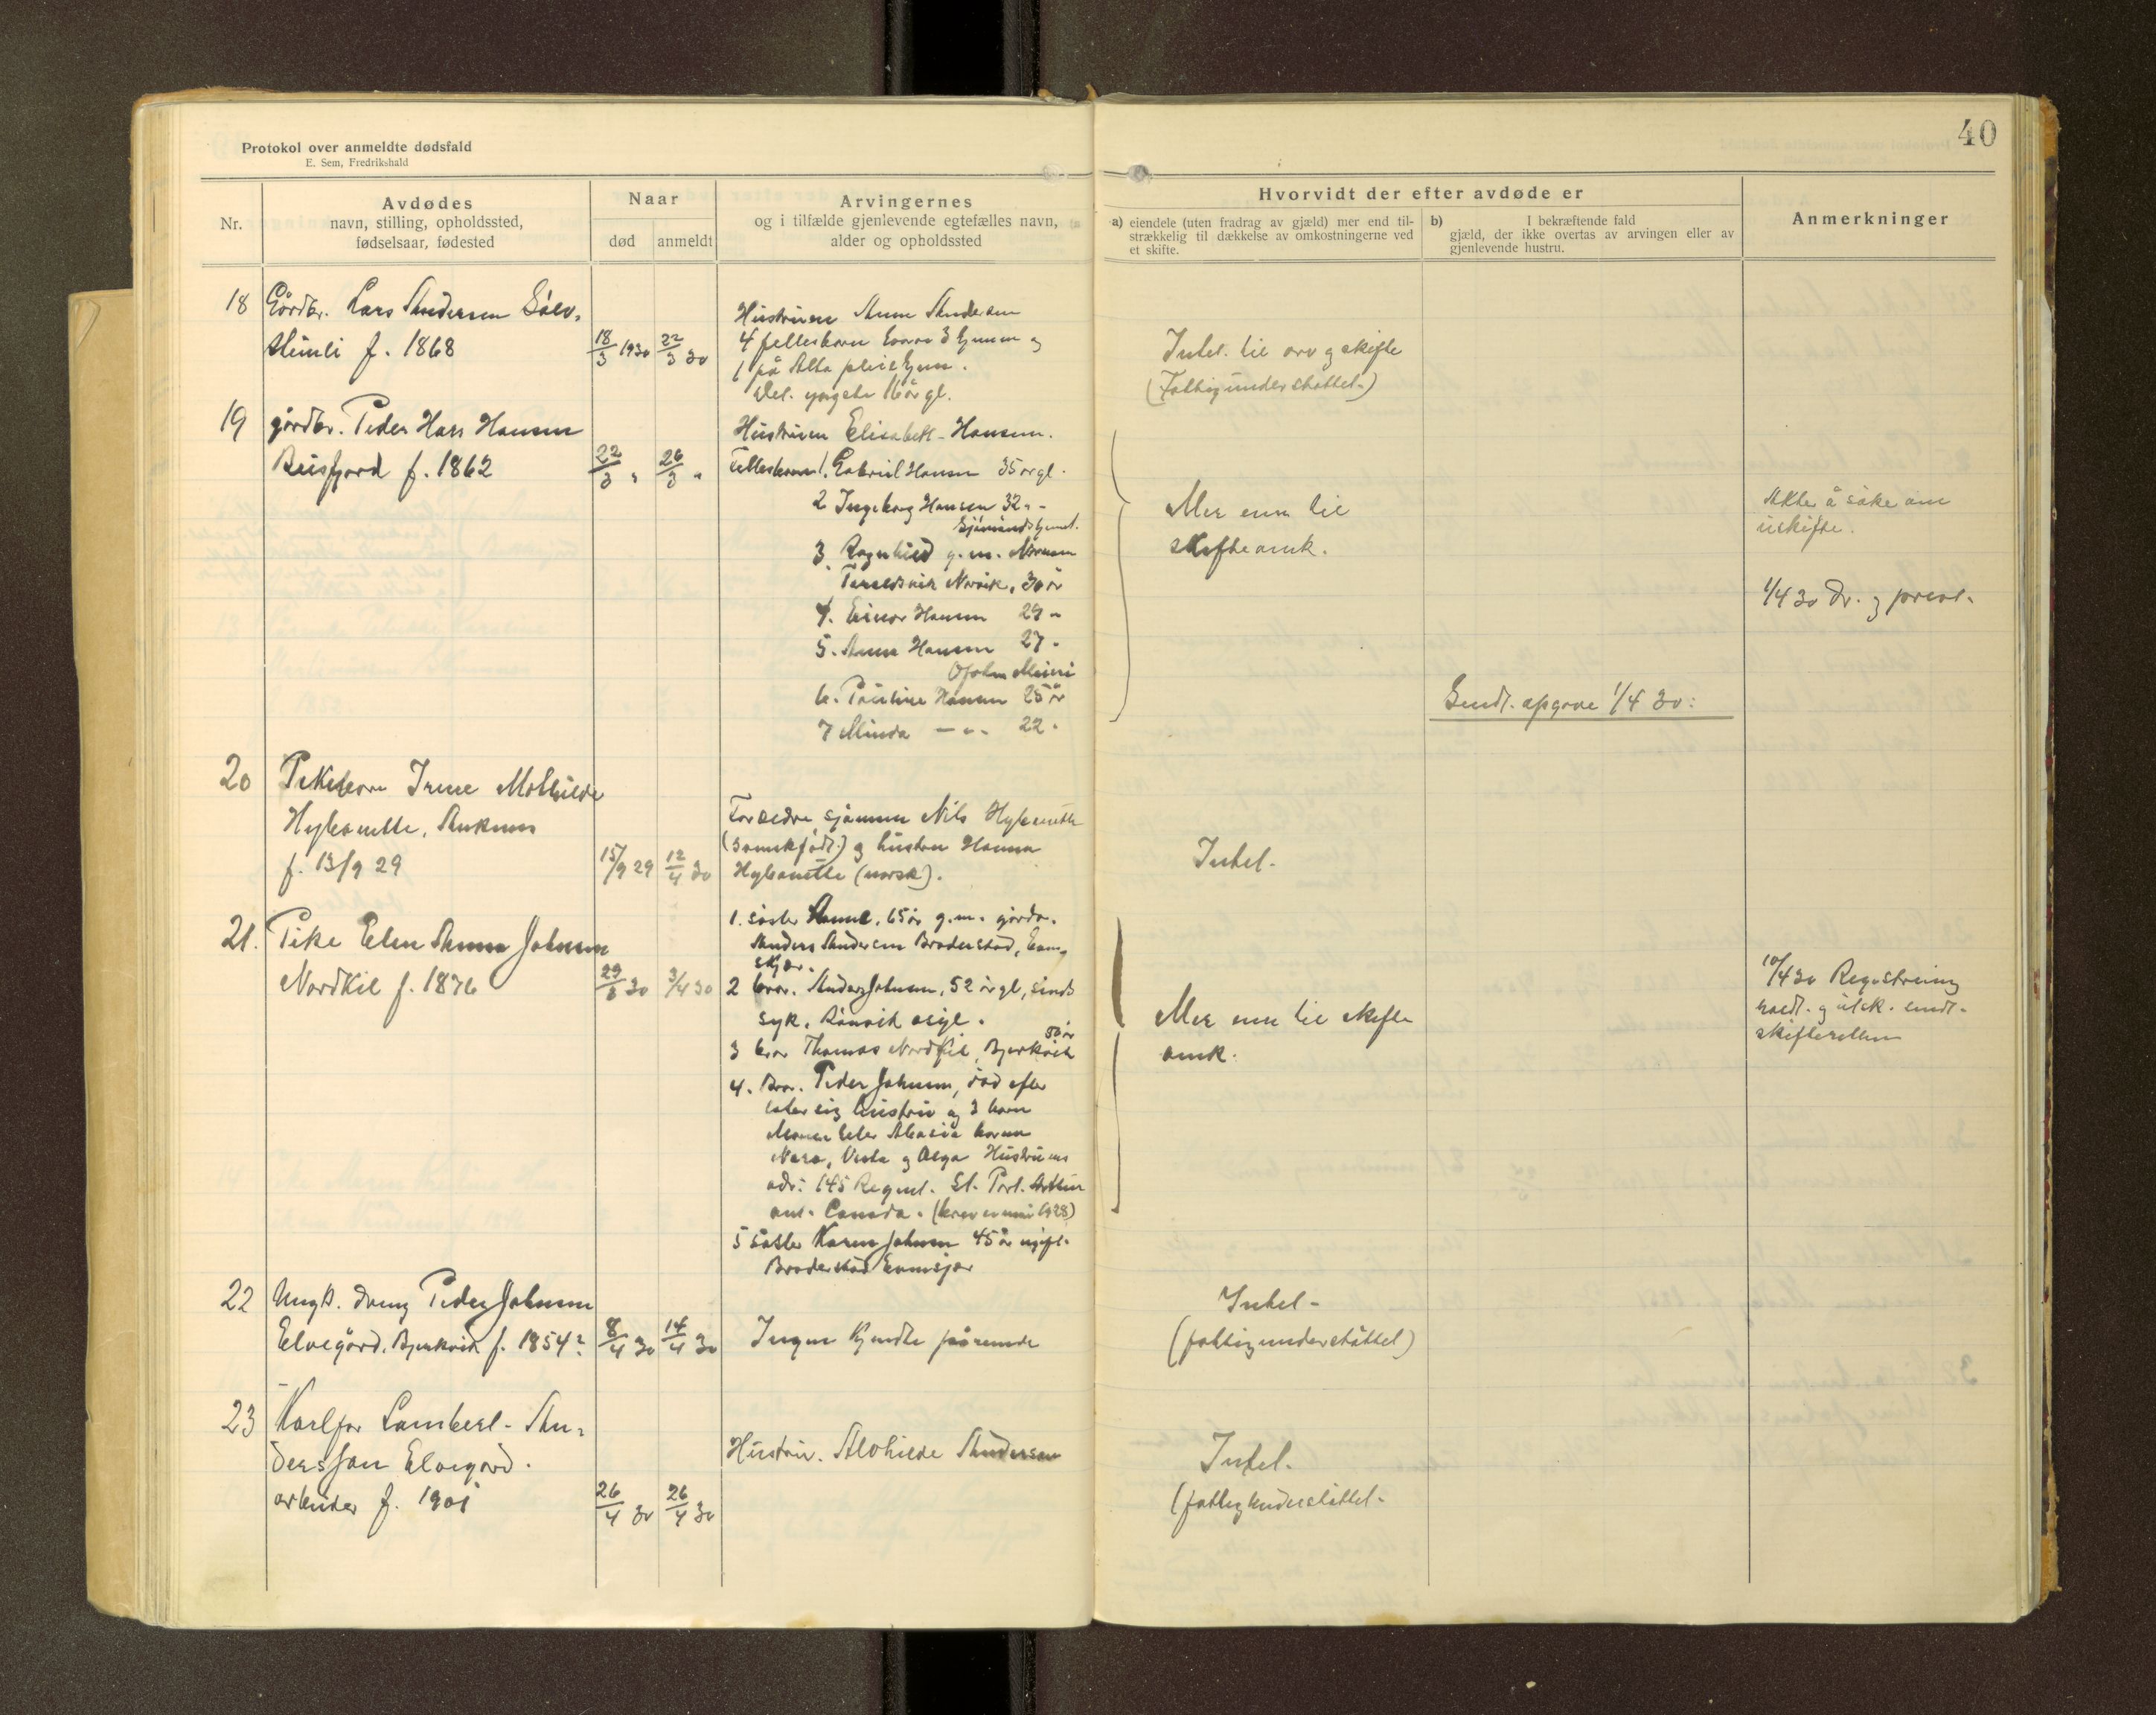 40
Protokol over anmeldte dødsfald
E. Sem, Fredrikshald
Nr.
Avdødes
navn, stilling, opholdssted,
fødselsaar, fødested
Naar
død
anmeldt
Arvingernes
og i tilfælde gjenlevende egtefælles navn,
alder og opholdssted
Hvorvidt der efter avdøde er
a) eiendele (uten fradrag av gjæld) mer end til-
strækkelig til dækkelse av omkostningerne ved
et skifte.
b) I bekræftende fald
gjæld, der ikke overtas av arvingen eller av
gjenlevende hustru.
Anmerkninger
18 Gårdbr. Lars Andersen Sølv-
steinli f. 1868
18/3 1930 22/3 30
Hustruen Anne Andersen
4 fellesbarn hvorav 3 hjemme og
1 på Alta pleiehjem.
Det yngste 16 år gl.
Intet til arv og skifte
(Fattigunderstøttet.)
19 gårdbr. Peder Hass Hansen
Beisfjord f. 1862
22/3 " 26/3 "
Hustruen Elisabeth Hansen.
Fellesbarn 1. Gabriel Hansen 35 år gl.
2 Ingeborg Hansen 32 " -
Sjømandshjemmet.
3. Ragnhild g. m. Normann
Taraldsvik Narvik, 30 år
4. Einar Hansen 29 "
5. Anna Hansen 27 -
Ofoten Meieri
6. Pauline Hansen 25 år
7 Minda — " - 22 -
Mer enn til
skifteomk.
Akter å søke om
uskifte.
1/4 30 Dr. og prevet.
Sendt. opgave 1/4 30:
20 Pikebarn Irene Mathilde
Hybanette, Ankenes
f. 13/9 29
15/9 29 12/4 30
Foreldre sjømann Nils Hybenette
(svenskfødt.) og hustru Hanna
Hybanette (norsk).
Intet-
21. Pike Elen Anna Johnsen
Nordkil f. 1876
29/3 30 3/4 30
1. søster Hanne, 65 år g. m. gårdbr.
Anders Andersen Broderstad, Evens-
skjær.
2 bror. Anders Johnsen, 52 år gl, sinds
syk, Rønvik asyl.
50 år
3 bror Thomas Nordkil, Bjerkvik
4. Bror. Peder Johnsen, død efter
later sig hustru og 3 barn
Nora, Viola og Olga Hustruens
adr: 145 Regent. St. Port. Arthur
ont. Canada. (brev av mai 1928)
5 søster Karen Johnsen 45 år ugift.
Broderstad Evenskjær
Mer enn til skifte
omk.
10/4 30 Registrering
holdt. og utsk. sendt-
skifteretten
22 Ungk. dreng Peder Johnsen
Elvegård, Bjerkvik f. 1854?
8/4 30 14/4 30
Ingen kjendte pårørende
Intet-
(fattigunderstøttet)
23 Karlfar Lambert- An-
dersson Elvegård.
arbeider f. 1901
26/4 30 26/4 30
Hustru. Alvhilde Andersen
Intet.
(fattigunderstøttet-